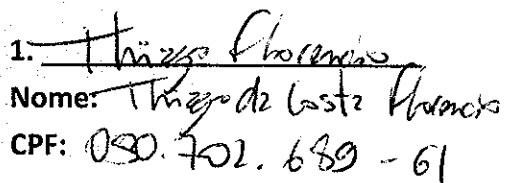 1. Thiago Florencio
Nome: Thiago da Costa Florencio
CPF: 080.702.689-61